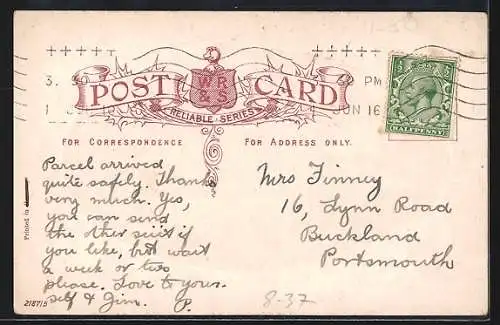 POST CARD
W.R.
& S.
RELIABLE SERIES
FOR CORRESPONDENCE
FOR ADDRESS ONLY.
3.
PM
1
JUN 16
HALFPENNY
Parcel arrived
quite safely. Thank
very much. Yes,
you can send
the other suit if
you like, but wait
a week or two
please. Love to your-
self & Jim. P.
Mrs Finney
16, Lynn Road
Buckland
Portsmouth
8-37
Printed in
218715